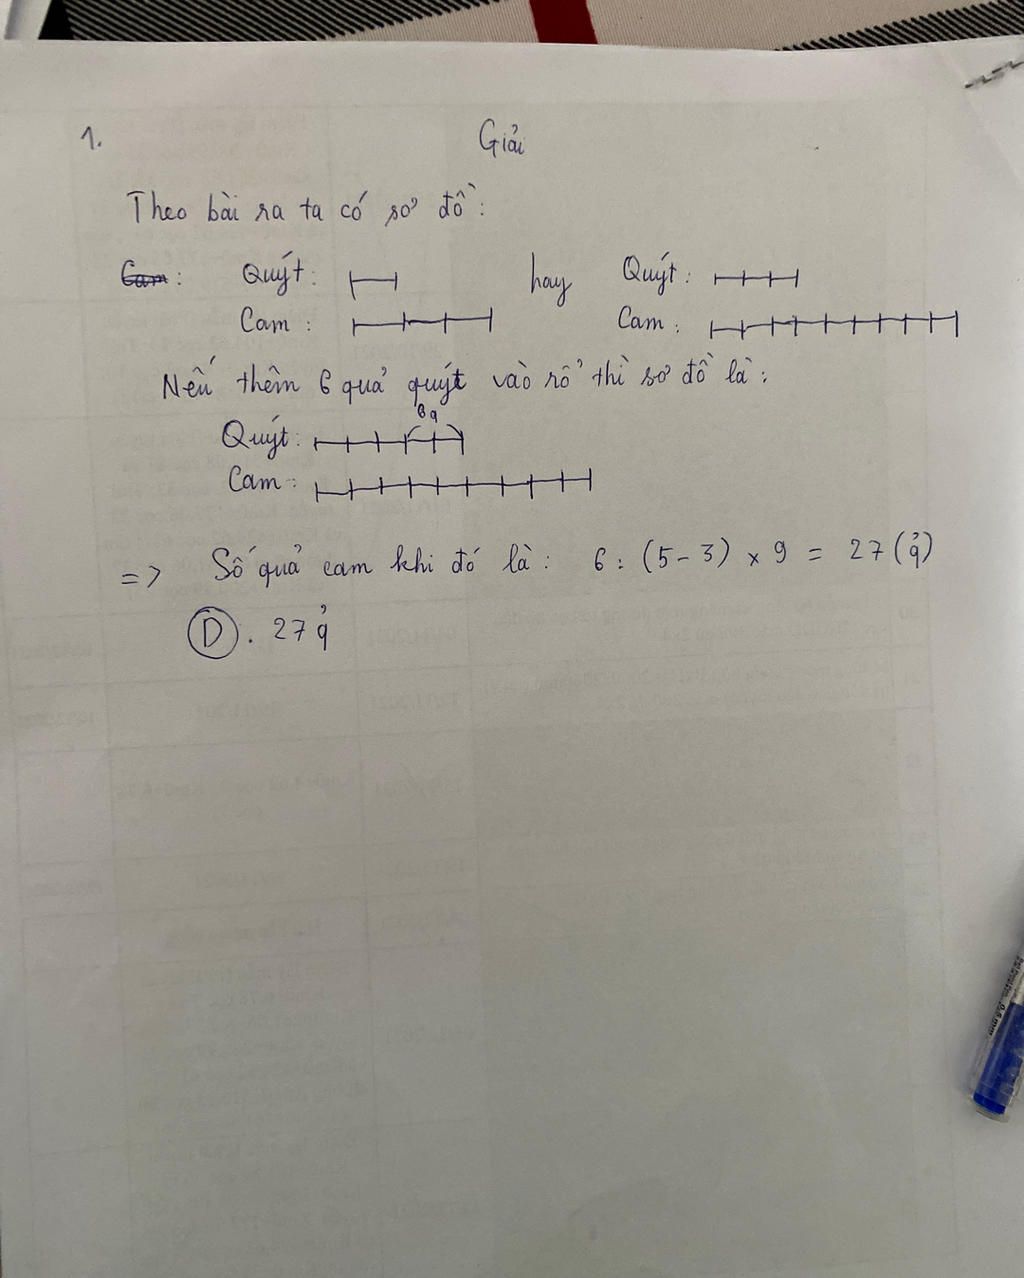 1. Giải
Theo bài ra ta có sơ đồ:
Cam: Quýt: hay Quýt:
Cam: Cam:
Nếu thêm 6 quả quýt vào rổ thì sơ đồ là:
6q
Quýt:
Cam:
=> Số quả cam khi đó là: 6 : (5 - 3) x 9 = 27 (q̉)
D. 27 q̉
0.5 mm